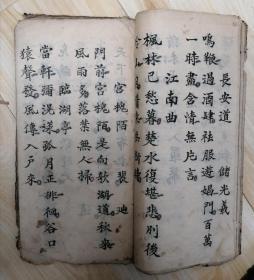 長安道 儲光羲
鳴鞭過酒肆袪服遊娼門百萬
一時盡含情無片言
江南曲
楓林已愁暮楚水復堪悲別後
宮槐陌 裴迪
門前宮槐陌是向欹湖道秋來
風雨多落葉無人掃
臨湖亭
當軒彌滉漾孤月正徘徊谷口
猿聲發風傳入戶來